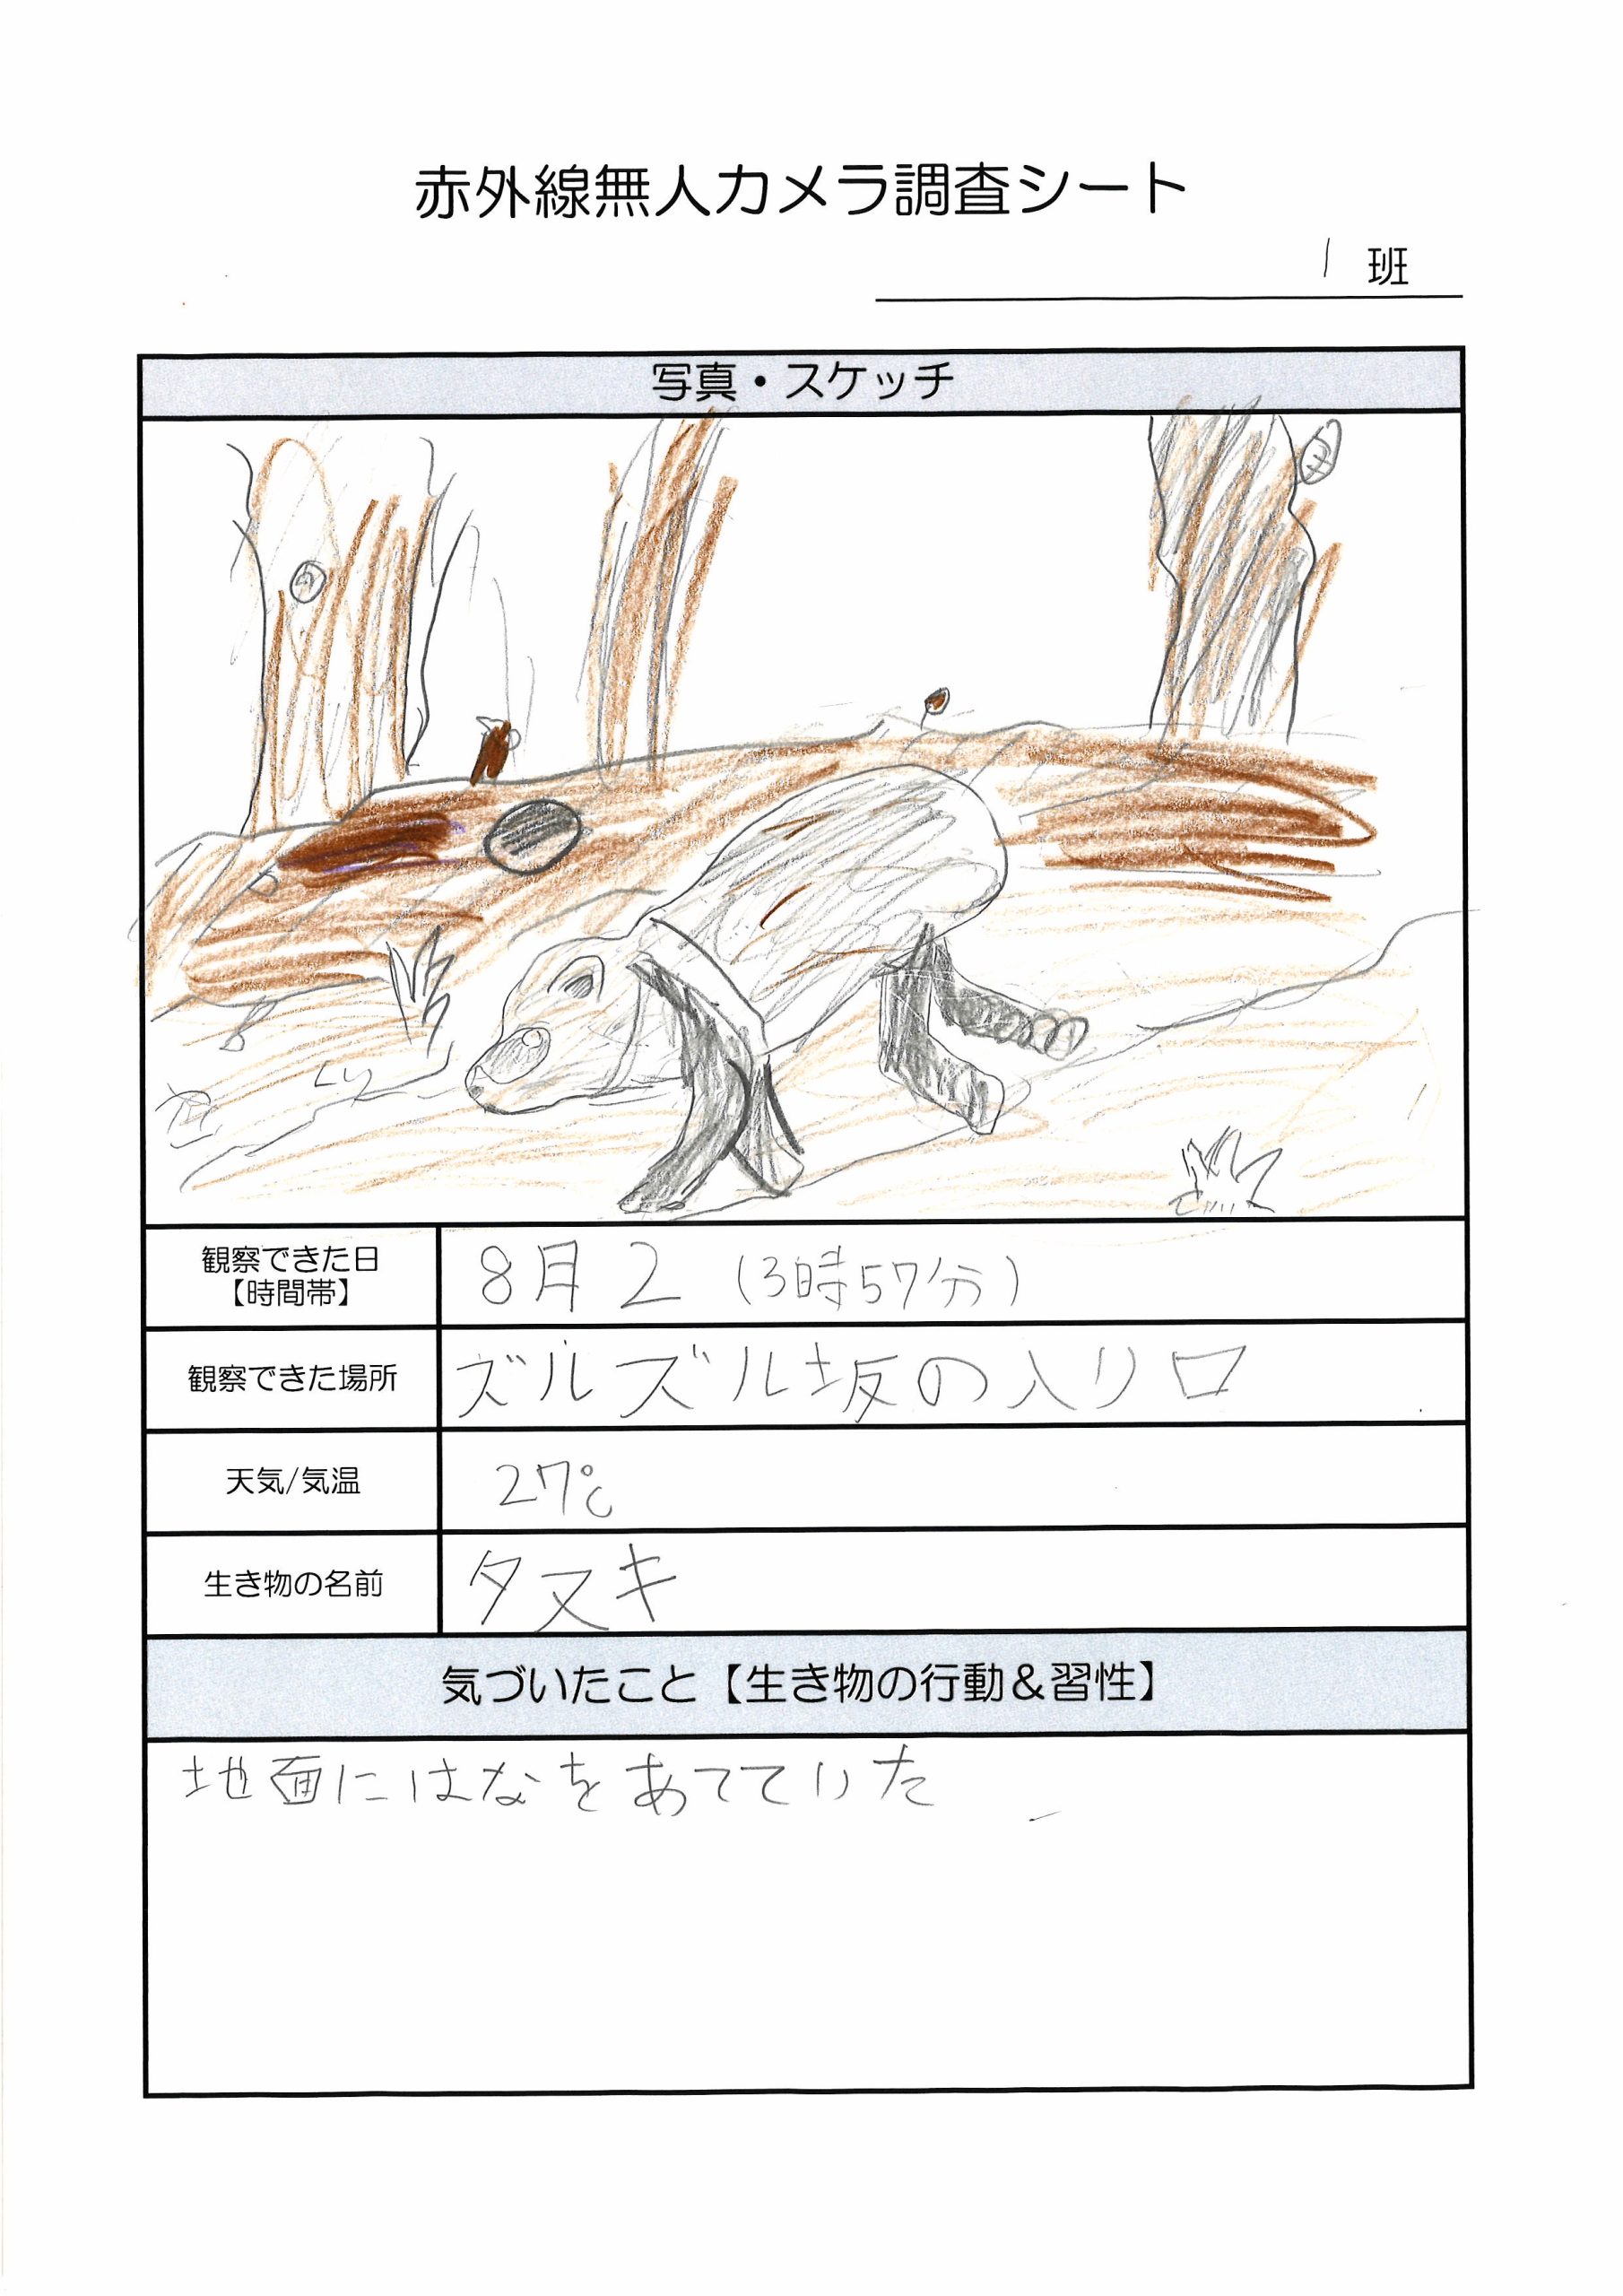 赤外線無人カメラ調査シート
1 班
写真・スケッチ
観察できた日
【時間帯】
8月2 (3時57分)
観察できた場所
ズルズル坂の入り口
天気/気温
27℃
生き物の名前
タヌキ
気づいたこと【生き物の行動＆習性】
地面にはなをあてていた